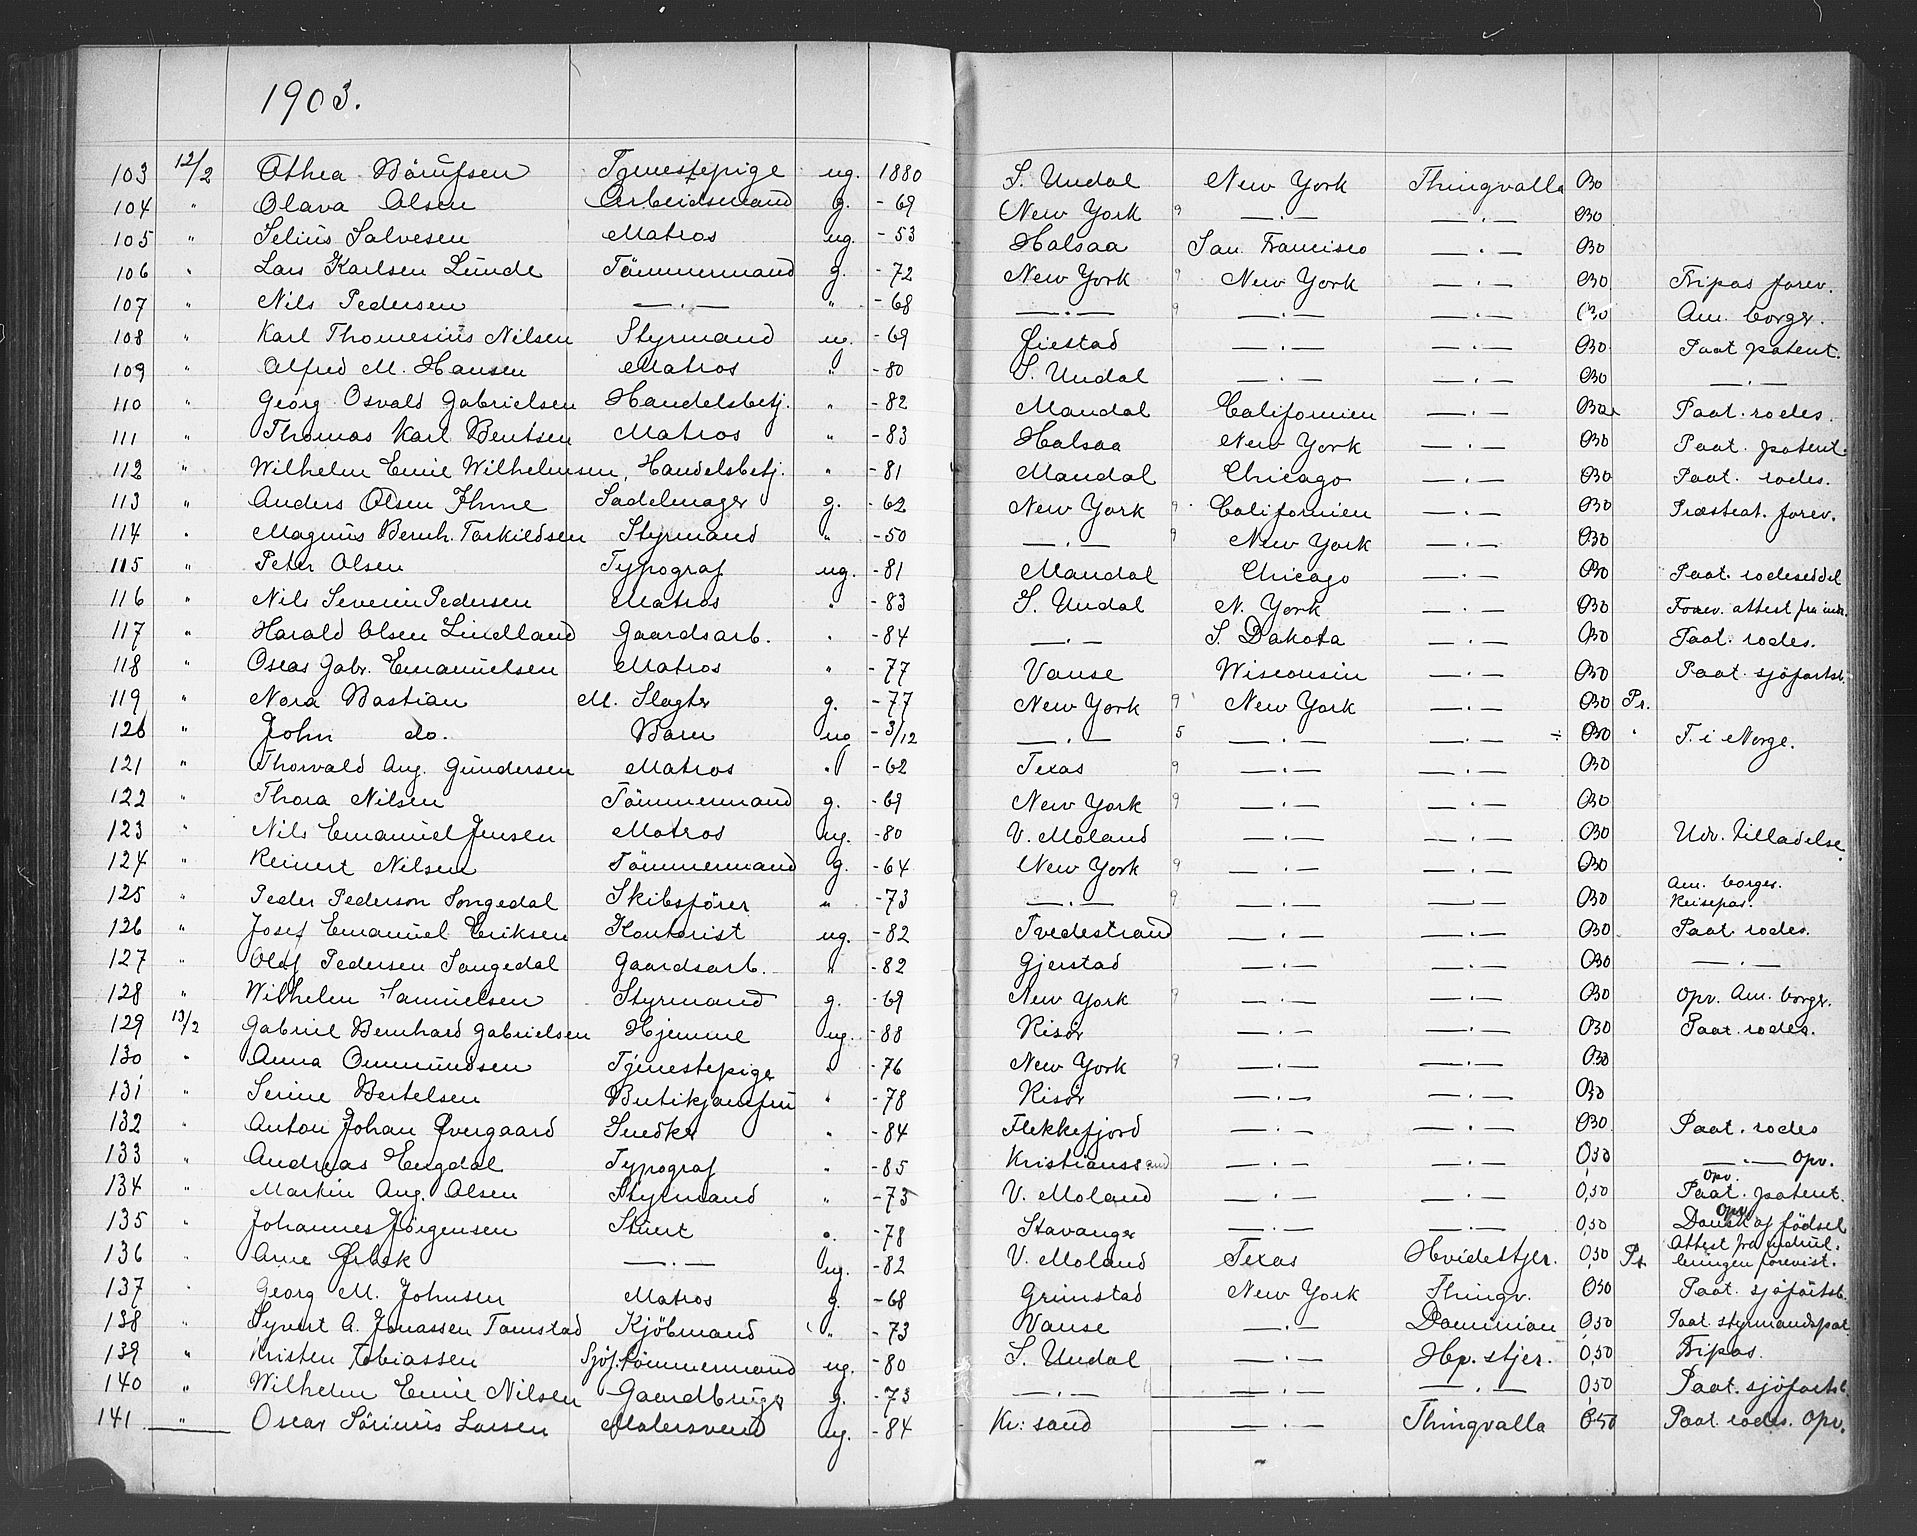 1903.
103 12/2 Othea Börufsen Tjenestepige ug. 1880 S. Undal New York Thingvalla 030
104 " Olava Olsen Arbeidsmand g. -69 New York 9 —.— —.— 030
105 " Selius Salvesen Matros ug. -53 Halsaa San Francisco —.— 030
106 " Lars Karlsen Lunde Tömmermand g. -72 New York 9 New York —.— 030 Fripas forev.
107 " Nils Pedersen —.— " -68 —.— 9 —.— —.— 030 Am. borger.
108 " Karl Thomesius Nilsen Styrmand ug. -69 Øiestad —.— —.— 030 Paat patent.
109 " Alfred M. Hansen Matros " -80 S. Undal —.— —.— 030 —.—
110 " Georg Osvald Gabrielsen Handelsbetj. " -82 Mandal Californien —.— 030 Paat. rodes.
111 " Thomas Karl Bentsen Matros " -83 Halsaa New York —.— 030 Paat. patent.
112 " Wilhelm Emil Wilhelmsen, Handelsbetj. " -81 Mandal Chicago —.— 030 Paat. rodes.
113 " Anders Olsen Ihme Sadelmager g. -62 New York 9 Californien —.— 030 Præsteat. forev.
114 " Magnus Bernh. Torkildsen Styrmand " -50 —.— 9 New York —.— 030
115 " Peter Olsen Typograf ug. -81 Mandal Chicago —.— 030 Paat. rodeseddel
116 " Nils Severin Pedersen Matros " -83 S. Undal N. York —.— 030 Forev. attest fra inr.
117 " Harald Olsen Lindland Gaardsarb. " -84 —.— S Dakota —.— 030 Paat. rodes.
118 " Oscar Gabr. Emanuelsen Matros " -77 Vanse Wisconsin —.— 030 Paat. sjöfartsb.
119 " Nora Bastian M. Slagter g. -77 New York 9 New York —.— 030 Pr.
120 " John do. Barn ug -3/12 —.— 5 —.— —.— ÷ 030 " F. i Norge.
121 " Thorvald Aug. Gundersen Matros " -62 Texas 9 —.— —.— 030
122 " Thora Nilsen Tömmermand g. -69 New York 9 —.— —.— 030
123 " Nils Emanuel Jensen Matros ug. -80 V. Moland —.— —.— 030 Udv. tilladelse.
124 " Reinert Nilsen Tömmermand g. -64 New York 9 —.— —.— 030
125 " Peder Pederson Songedal Skibsförer " -73 —.— 9 —.— —.— 030 Am. borger. Reisepas.
126 " Josef Emanuel Eriksen Kontorist ug. -82 Tvedestrand —.— —.— 030 Paat rodes.
127 " Olaf Pedersen Songedal Gaardsarb. " -82 Gjerstad —.— —.— 030 —.—
128 " Wilhelm Samuelsen Styrmand g. -69 New York 9 —.— —.— 030 Opv. Am. borger.
129 13/2 Gabriel Bernhard Gabrielsen Hjemme ug. -88 Risör —.— —.— 030 Paat. rodes.
130 " Anna Ommundsen Tjenestepige " -76 New York 9 —.— —.— 030
131 " Serine Bertelsen Butikjomfru " -78 Risör —.— —.— 030
132 " Anton Johan Øvergaard Snedker " -84 Flekkefjord —.— —.— 030 Paat. rodes
133 " Andreas Engdal Typograf " -85 Kristianssand —.— —.— 0,50 —.— Opv.
134 " Martin Aug. Olsen Styrmand " -73 V. Moland —.— —.— 0,50 Opv. Paat. patent.
135 " Johannes Jörgensen Stuert " -78 Stavanger —.— —.— 0,50 Opv. Dansk af födsel
136 " Arne Ørbek —.— ug. -82 V. Moland Texas Hvidestjer. 0,50 Pr. Attest fra indrul. leringen forevist.
137 " Georg M. Johnsen Matros g. -68 Grimstad New York Thingv. 050 Paat. sjöfartsb.
138 " Syvert A. Jonassen Tomstad Kjöbmand " -73 Vanse —.— Dominion 050 Paat styrmandspat
139 " Kristen Tobiassen Sjöf. tömmermand ug. -80 S. Undal —.— Hp. stjer. 0,50 Fripas.
140 " Wilhelm Emil Nilsen Gaardbruger g. -73 —.— —.— —.— 050 Paat. sjöfartsb.
141 " Oscar Sörinus Larsen Malersvend ug. -84 Kr: sand —.— Thingvalla 050 Paat. rodes. Opv.